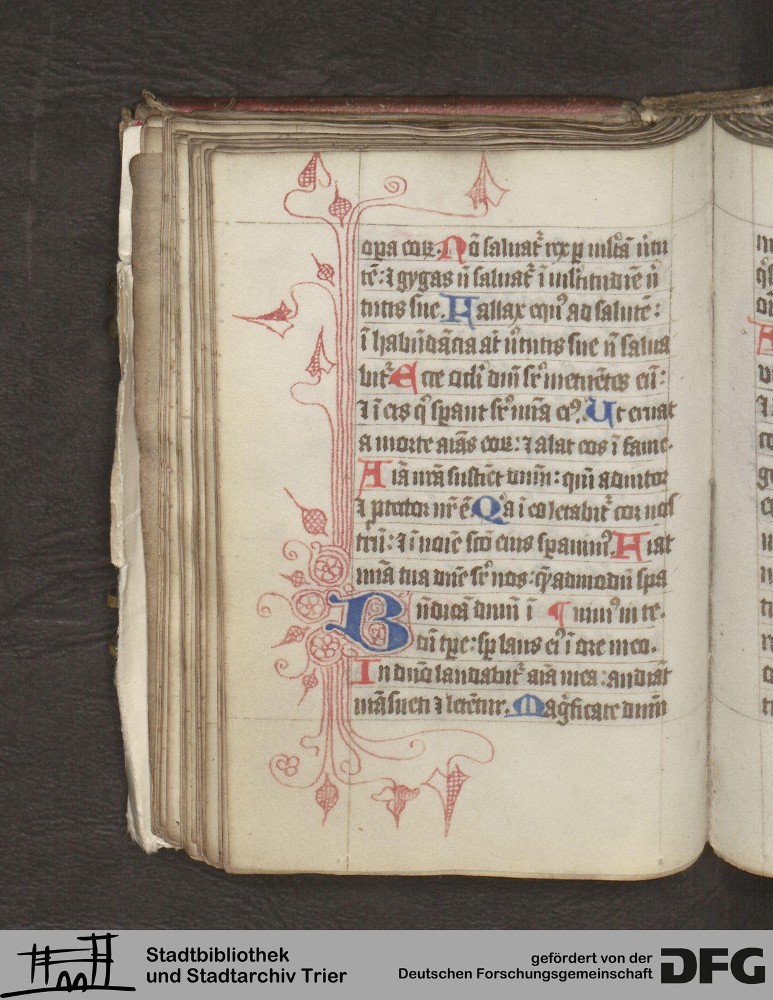 opa eoꝝ. Nō saluat᷑ rex ꝑ multā v̾tu
tē: ⁊ gygas ñ saluat᷑ ī multitudīe v̾
tutis sue. Fallax equꝰ ad salutē:
ī habūdācia at̄ v̾tutis sue ñ salua
bit᷑ Ecce ocl'i dñi sr̄ metuētes eū:
⁊ ī eis q̇ sꝑant sr̄ mīa eiꝰ. Ut eruat
a morte aīas eoꝝ: ⁊ alat eos ī fame.
Aīa nr̄a sustīet dñm: qm̄ adiutor
⁊ ꝓtector nr̄ ē. Qͥa ī eo letabit᷑ cor nos
trū: ⁊ ī noīe scō eius sꝑauimꝰ. Fiat
mīa tua dñe sr̄ nos: q̄admodū spa
Bñdicā dñm ī ¶ uimꝰ in te.
oī tꝑe: sꝑ laus eiꝰ ī ore meo.
In dño laudabit᷑ aīa mea: audiāt
māsueti ⁊ letētur. Mag̅ficate dñm
Stadtbibliothek
und Stadtarchiv Trier
gefördert von der
Deutschen Forschungsgemeinschaft
DFG